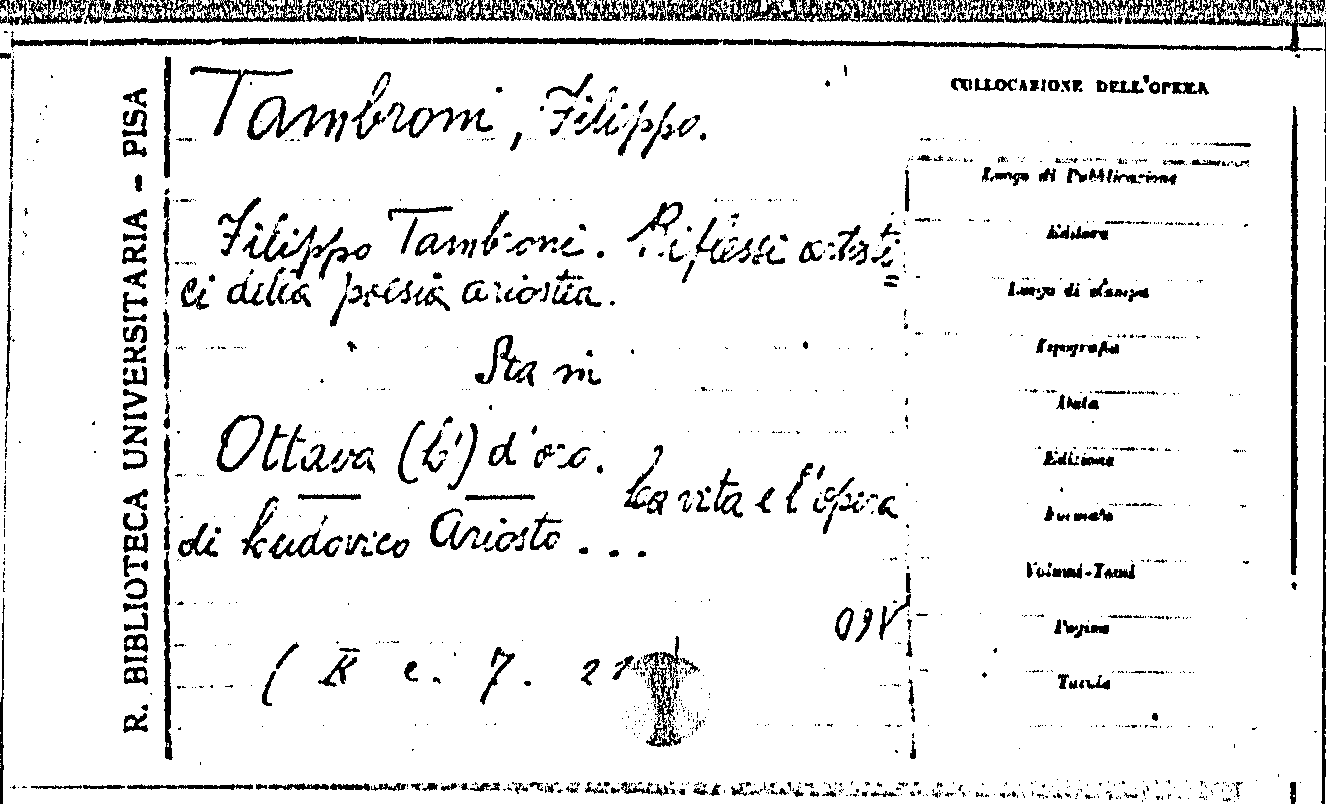 R. BIBLIOTECA UNIVERSITARIA - PISA
Tambroni, Filippo.
Filippo Tambroni. Riflessi artisti=
ci della poesia ariostea.
Sta in
Ottava (L') d'oro. La vita e l'opera
di Ludovico Ariosto...
( K c. 7. 21
COLLOCAZIONE DELL'OPERA
Luogo di Pubblicazione
Editore
Luogo di stampa
Tipografia
Data
Edizione
Formato
Volumi-Tomi
Pagine
Tavole